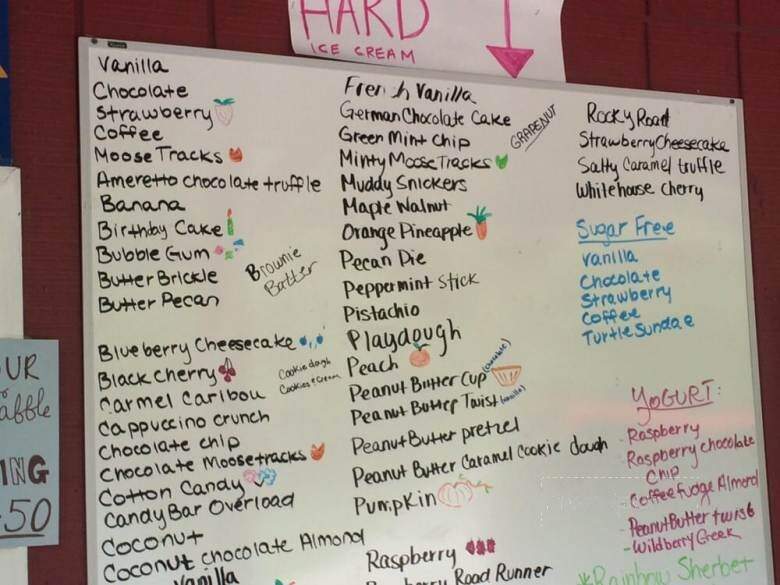 HARD
ICE CREAM
Vanilla
Chocolate
Strawberry
Coffee
Moose Tracks
Ameretto chocolate truffle
Banana
Birthday Cake
Bubble Gum
Butter Brickle
Butter Pecan
Brownie
Batter
Blueberry Cheesecake
Black cherry
Carmel Caribou
Cappuccino crunch
Chocolate chip
Chocolate Moosetracks
Cotton Candy
Candy Bar Overload
Coconut
Coconut chocolate Almond
Vanilla
Cookie dough
Cookies & Cream
French Vanilla
German Chocolate Cake
Green Mint Chip
GRAPENUT
Minty Moose Tracks
Muddy Snickers
Maple Walnut
Orange Pineapple
Pecan Pie
Peppermint Stick
Pistachio
Playdough
Peach
Peanut Butter Cup (chocolate)
Peanut Butter Twist (vanilla)
Peanut Butter pretzel
Peanut Butter Caramel Cookie dough
Pumpkin
Raspberry
Road Runner
Rocky Road
Strawberry Cheesecake
Salty Caramel truffle
Whitehouse cherry
Sugar Free
Vanilla
Chocolate
Strawberry
Coffee
Turtle Sundae
YOGURT:
- Raspberry
- Raspberry chocolate
Chip
- Coffee fudge Almond
- Peanut Butter twist
- Wildberry Greek
*Rainbow Sherbet
UR
affle
ING
.50